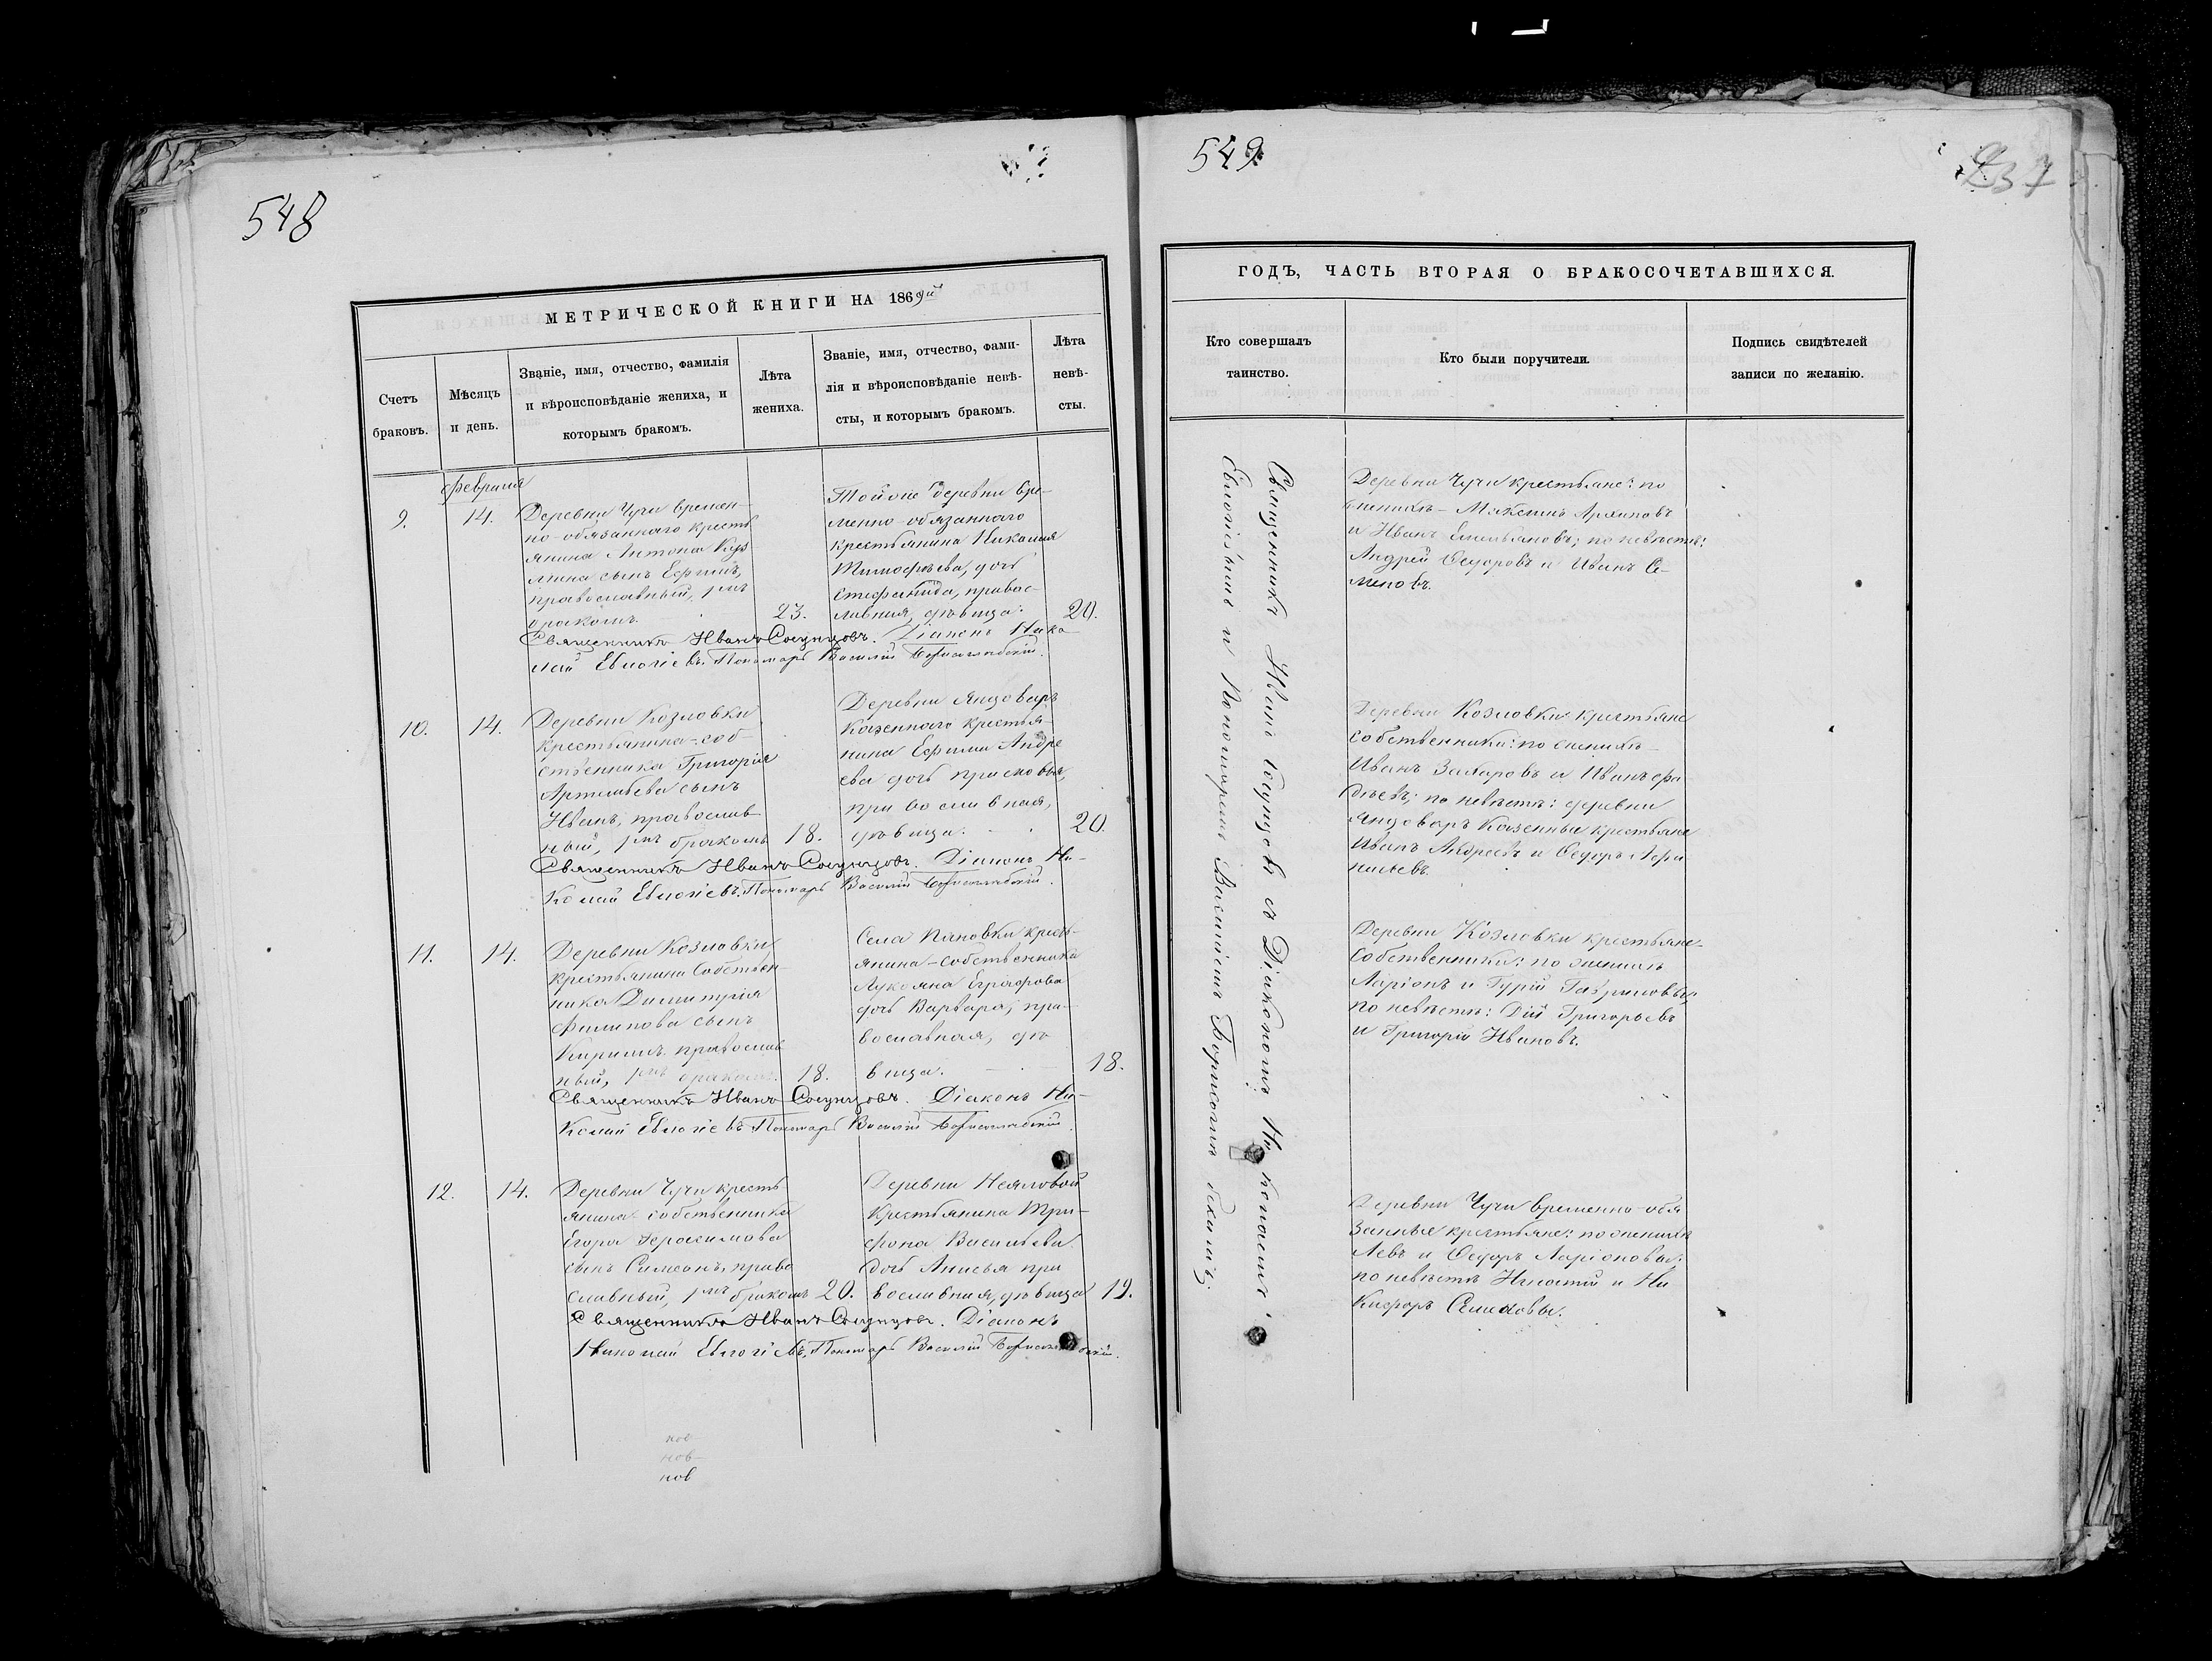 548
МЕТРИЧЕСКОЙ КНИГИ НА 1869й
Счетъ браковъ.
Мѣсяцъ и день.
Званіе, имя, отчество, фамилія
и вѣроисповѣданіе жениха, и
которымъ бракомъ.
Лѣта жениха.
Званіе, имя, отчество, фами-
лія и вѣроисповѣданіе невѣ-
сты, и которымъ бракомъ.
Лѣта невѣ-
сты.
Февраля
9.
14.
Деревни Чучи времен-
но-обязаннаго кресть
янина Антона Куз
мина сынъ Ефимъ,
православный, 1мъ
бракомъ.
23.
Тойже деревни вре-
менно-обязаннаго
крестьянина Николая
Тимофѣева, дочь
Стефанида, правос-
лавная, дѣвица.
20.
Священникъ Иванъ Согунцовъ. Діаконъ Нико
лай Евлогіевъ. Пономарь Василій Борисоглѣбскій.
10.
14.
Деревни Козловки
крестьянина-соб-
ственника Григорія
Артемьева сынъ
Иванъ, православ
ный, 1мъ бракомъ
18.
Деревни Яндоваръ
Казеннаго крестья-
нина Ефима Андре
ева дочь
православная,
дѣвица.
20.
Священникъ Иванъ Согунцовъ. Діаконъ Ни-
колай Евлогіевъ. Пономарь Василій Борисоглѣбскій.
11.
14.
Деревни Козловки
крестьянина Собствен-
ника Димитрія
Филипова сынъ
Кирилъ православ
ный, 1мъ бракомъ.
18.
Села Пановки кресть-
янина-собственника
Лукояна Евграфова
дочь Варвара, пра-
вославная, дѣ
вица.
18.
Священникъ Иванъ Согунцовъ. Діаконъ Ни-
колай Евлогіевъ Пономарь Василій Борисоглѣбскій.
12.
14.
Деревни Чучи кресть
янина собственника
Егора Герасимова
сынъ Симеонъ, право
славный, 1мъ бракомъ
20.
Деревни Нееловой
Крестьянина Три-
фона Васильева
дочь Анисья пра
вославная, дѣвица
19.
Священникъ Иванъ Согунцовъ. Діаконъ
Николай Евлогіевъ, Пономарь Василій Борисоглѣбскій.
нов
нов-
нов
549
237
ГОДЪ, ЧАСТЬ ВТОРАЯ О БРАКОСОЧЕТАВШИХСЯ.
Кто совершалъ
таинство.
Кто были поручители.
Подпись свидѣтелей
записи по желанію.
Священникъ Иванъ Согунцовъ съ Діакономъ Николаемъ
Евлогіевымъ и Пономаремъ Василіемъ Борисоглѣбскимъ.
Деревни Чучи крестьяне: по
женихѣ - Максимъ Архиповъ
и Иванъ Емельяновъ; по невѣстѣ:
Андрей Ѳедоровъ и Иванъ Се-
меновъ.
Деревни Козловки крестьяне
собственники: по женихѣ-
Иванъ Захаровъ и Иванъ Фа-
дѣевъ; по невѣстѣ: деревни
Яндоваръ Казенные крестьяне
Иванъ Андреевъ и Ѳедоръ Афа
насьевъ.
Деревни Козловки крестьяне-
собственники: по женихѣ
Ларіонъ и Гурій Гавриловы;
по невѣстѣ: Дій Григорьевъ
и Григорій Ивановъ.
Деревни Чучи временно-обя
занные крестьяне: по женихѣ
Левъ и Ѳедоръ Ларіоновы;
по невѣстѣ и Ни
кифоръ